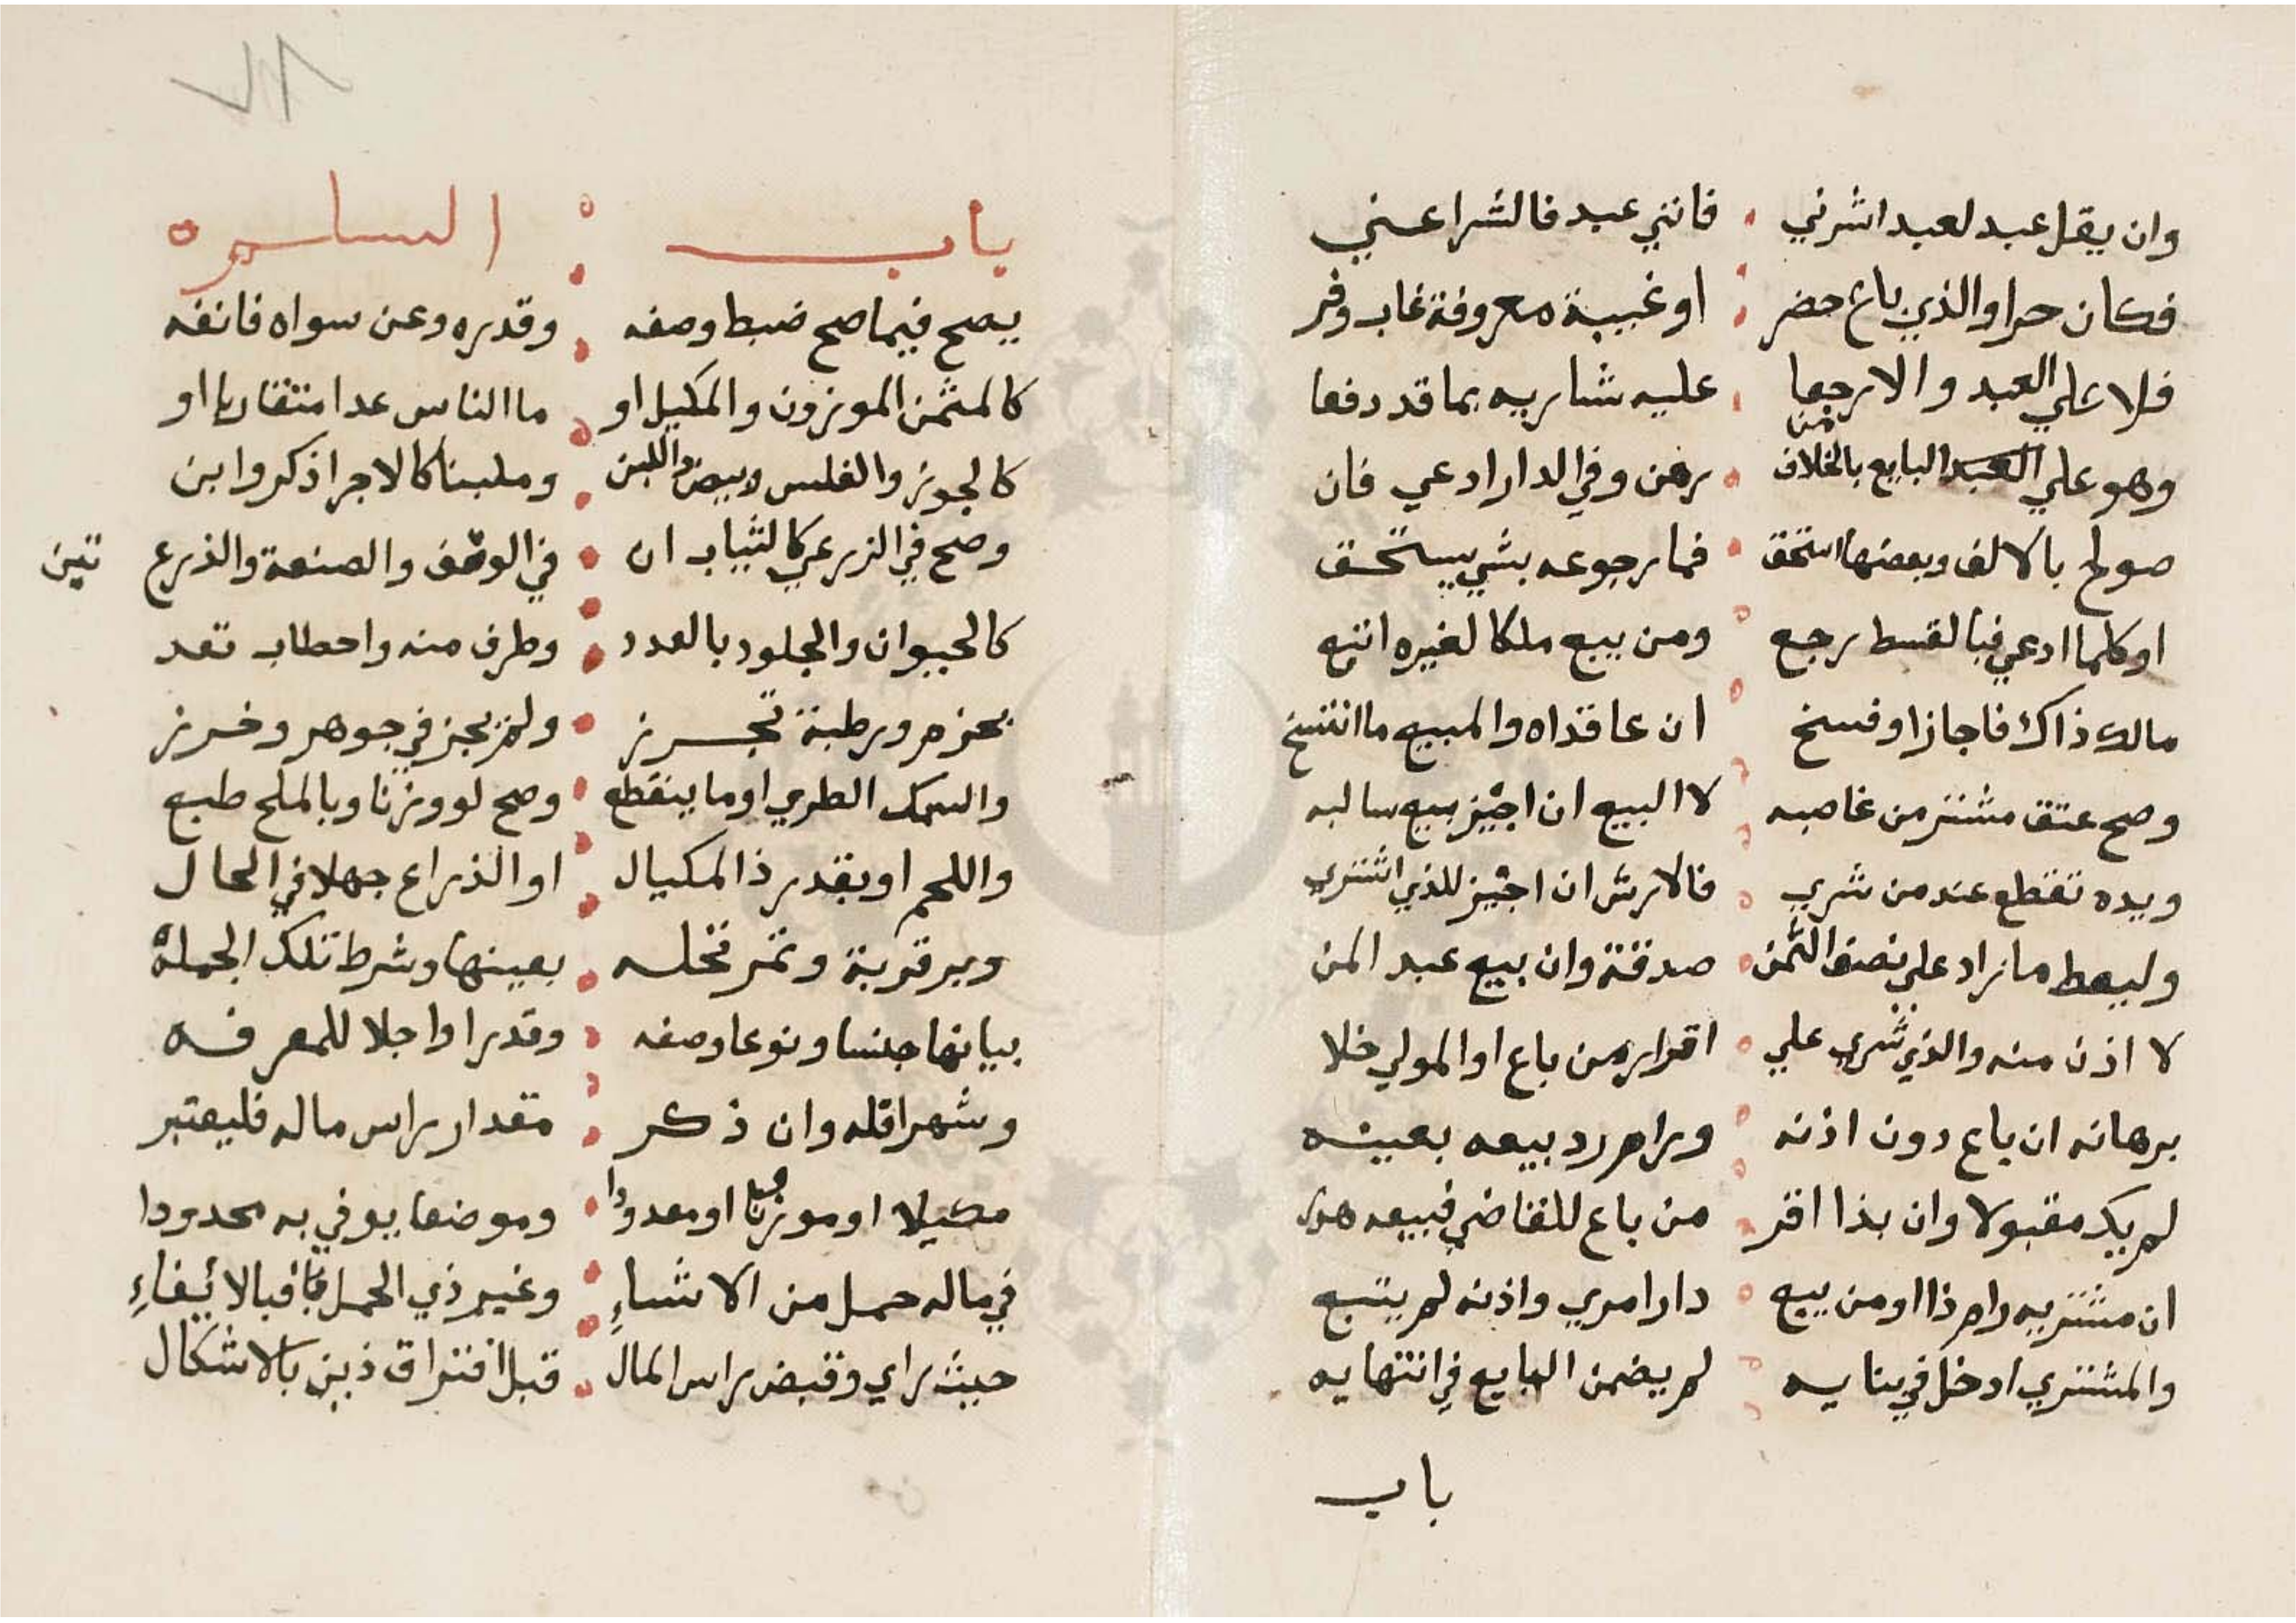 وان يقل عبد لعبد اشرني فانني عبد فالشرا عني
فكان حرا والذي باع حضر او غيبة معروفة غاب وقر
فلا علي العبد والا رجعا عليه شاريه بما قد دفعا
وهو علي البايع بالخلاف من رهن وفي الدار ادعي فان
صولح بالالف وبعضها استحق فما رجوعه بشي يستحق
او كلما ادعي فبالقسط رجع ومن يبع ملكا لغيره اتبع
مالك ذاك فاجاز او فسخ ان عاقداه والمبيع ما انتسخ
وصح عتق مشتر من غاصبه لا البيع ان اجيز بيع سالبه
ويده تقطع عند من شري فالارش ان اجيز للذي اشتري
وليعط ما زاد علي نصف الثمن صدقة وان بيع عبد المن
لا اذن منه والذي شري علي اقرار من باع او المولي خلا
برهانه ان باع دون اذنه ورام رد بيعه بعينه
لم يك مقبولا وان بذا اقر من باع للقاضي فبيعه هدر
ان مشتريه رام ذا او من يبع دار امري واذنه لم يتبع
والمشتري ادخل في بنايه لم يضمن البايع في انتهايه
باب
باب السلم
يصح فيما صح ضبط وصفه وقدره وعن سواه فانفه
كالمثمن الموزون والمكيل او ما الناس عدا متقاربا او
كالجوز والفلس وبيض واللبن وملبنا كالاجر اذكروا بن
وصح في الزرعي كالثياب ان في الوصف والصنعة والذرع تبن
كالحيوان والجلود بالعدد وطرف منه واحطاب تعد
بحزم ورطبة تجرز ولم يجز في جوهر وخرز
والسمك الطري او ما ينقطع وصح لو وزنا وبالملح طبع
واللحم او بقدر ذا المكيال او الذراع جهلا في الحال
وبر قرية وتمر نخله بعينها وشرط تلك الجملة
بيانها جنسا ونوعا وصفه وقدرا واجلا للمعرفه
وشهر اقله وان ذكر مقدار راس ماله فليعتبر
مكيلا او موزونا او معدودا وموضعا يوفي به محدودا
في ماله حمل من الاشياءِ وغير ذي الحمل فبالايفاءِ
حيث راي وقبض راس المال قبل افتراق ذين بالاشكال